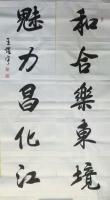 和合樂東境
魅力昌化江